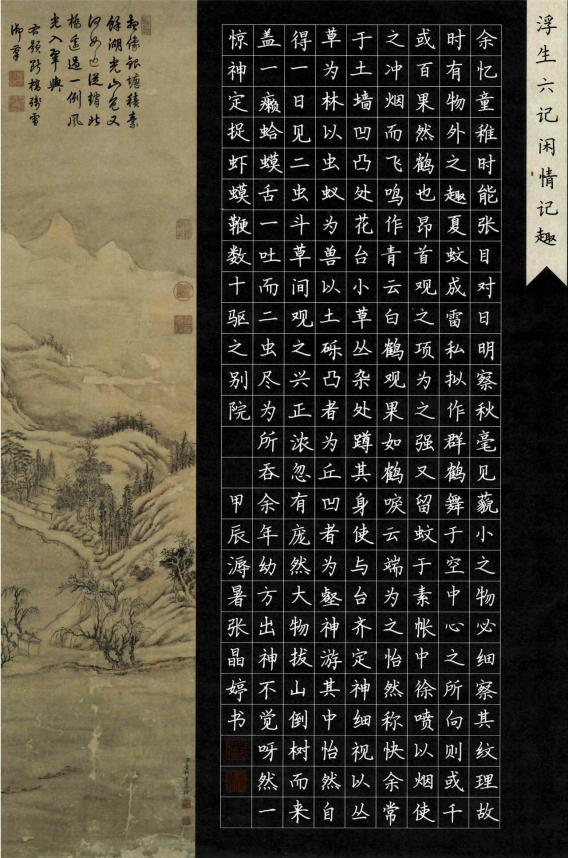 浮生六记闲情记趣
余忆童稚时能张目对日明察秋毫见藐小之物必细察其纹理故
时有物外之趣夏蚊成雷私拟作群鹤舞于空中心之所向则或千
或百果然鹤也昂首观之项为之强又留蚊于素帐中徐喷以烟使
之冲烟而飞鸣作青云白鹤观果如鹤唳云端为之怡然称快余常
于土墙凹凸处花台小草丛杂处蹲其身使与台齐定神细视以丛
草为林以虫蚁为兽以土砾凸者为丘凹者为壑神游其中怡然自
得一日见二虫斗草间观之兴正浓忽有庞然大物拔山倒树而来
盖一癞蛤蟆舌一吐而二虫尽为所吞余年幼方出神不觉呀然一
惊神定捉虾蟆鞭数十驱之别院 甲辰溽暑张晶婷书
銀塘積素
餘湖光山色又
一例風
光入翠輿
右題斷橋殘雪
御筆